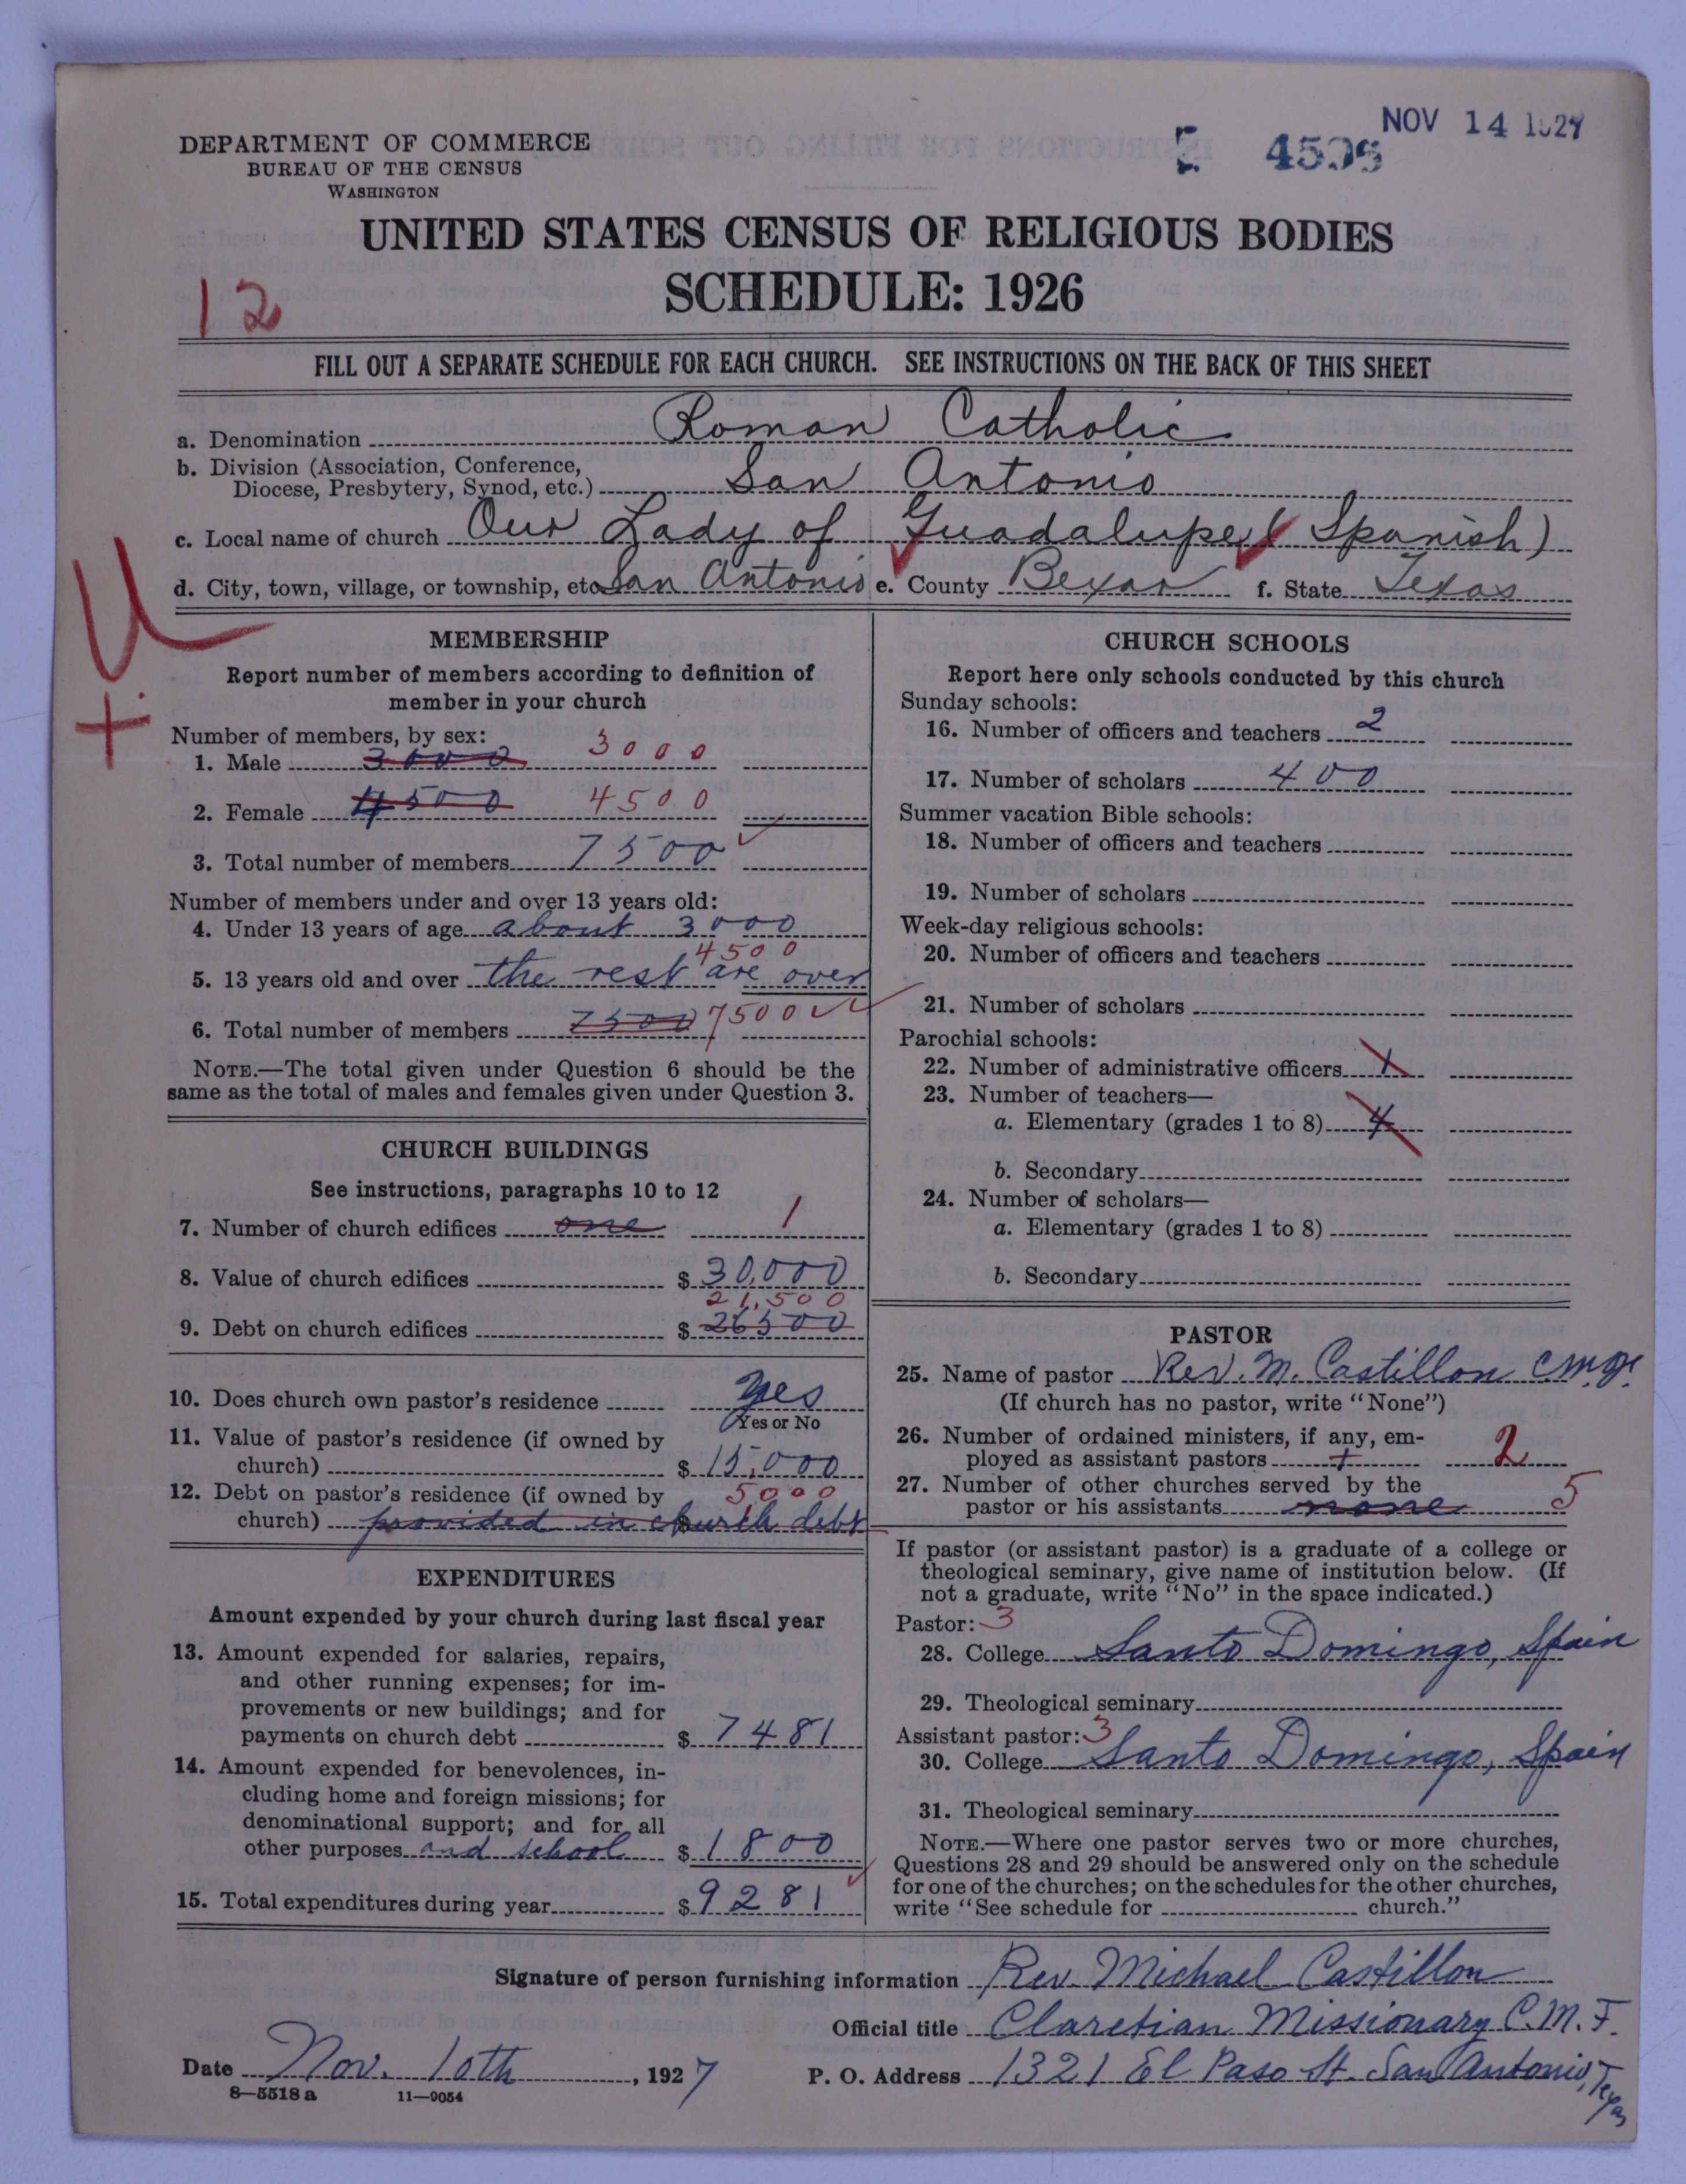 NOV 14 1927
E 4596
DEPARTMENT OF COMMERCE
BUREAU OF THE CENSUS
WASHINGTON
UNITED STATES CENSUS OF RELIGIOUS BODIES
SCHEDULE: 1926
12
FILL OUT A SEPARATE SCHEDULE FOR EACH CHURCH. SEE INSTRUCTIONS ON THE BACK OF THIS SHEET
a. Denomination Roman Catholic
b. Division (Association, Conference,
Diocese, Presbytery, Synod, etc.) San Antonio
c. Local name of church Our Lady of Guadalupe (Spanish)
d. City, town, village, or township, etc San Antonio e. County Bexar f. State Texas
U
+
MEMBERSHIP
Report number of members according to definition of
member in your church
Number of members, by sex:
1. Male 3000 3000
2. Female 4500 4500
3. Total number of members 7500
Number of members under and over 13 years old:
4. Under 13 years of age about 3000
4500
5. 13 years old and over the rest are over
6. Total number of members 7500 7500
NOTE.—The total given under Question 6 should be the
same as the total of males and females given under Question 3.
CHURCH BUILDINGS
See instructions, paragraphs 10 to 12
7. Number of church edifices one 1
8. Value of church edifices $ 30,000
21,500
9. Debt on church edifices $ 26500
10. Does church own pastor's residence yes
Yes or No
11. Value of pastor's residence (if owned by
church) $ 15,000
12. Debt on pastor's residence (if owned by 5000
church) provided in church debt $
EXPENDITURES
Amount expended by your church during last fiscal year
13. Amount expended for salaries, repairs,
and other running expenses; for im-
provements or new buildings; and for
payments on church debt $ 7481
14. Amount expended for benevolences, in-
cluding home and foreign missions; for
denominational support; and for all
other purposes and school $ 1800
15. Total expenditures during year $ 9281
CHURCH SCHOOLS
Report here only schools conducted by this church
Sunday schools:
16. Number of officers and teachers 2
17. Number of scholars 400
Summer vacation Bible schools:
18. Number of officers and teachers
19. Number of scholars
Week-day religious schools:
20. Number of officers and teachers
21. Number of scholars
Parochial schools:
22. Number of administrative officers 1
23. Number of teachers—
a. Elementary (grades 1 to 8) 4
b. Secondary
24. Number of scholars—
a. Elementary (grades 1 to 8)
b. Secondary
PASTOR
25. Name of pastor Rev. M. Castillon C.M.F.
(If church has no pastor, write "None")
26. Number of ordained ministers, if any, em-
ployed as assistant pastors + 2
27. Number of other churches served by the
pastor or his assistants none 5
If pastor (or assistant pastor) is a graduate of a college or
theological seminary, give name of institution below. (If
not a graduate, write "No" in the space indicated.)
Pastor: 3
28. College Santo Domingo, Spain
29. Theological seminary
Assistant pastor: 3
30. College Santo Domingo, Spain
31. Theological seminary
NOTE.—Where one pastor serves two or more churches,
Questions 28 and 29 should be answered only on the schedule
for one of the churches; on the schedules for the other churches,
write "See schedule for church."
Signature of person furnishing information Rev. Michael Castillon
Official title Claretian Missionary C.M.F.
Date Nov. 10th, 1927 P. O. Address 1321 El Paso St. San Antonio, Texas
8—5518 a 11—9054